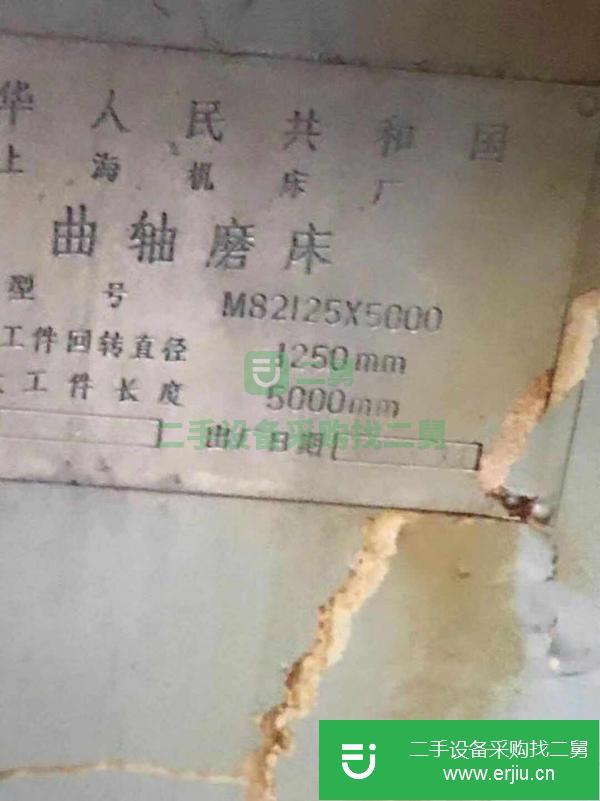 华人民共和国
上海机床厂
曲轴磨床
型号 M82125X5000
工件回转直径 1250mm
工件长度 5000mm
出厂日期
二舅
二手设备采购找二舅
二手设备采购找二舅
www.erjiu.cn